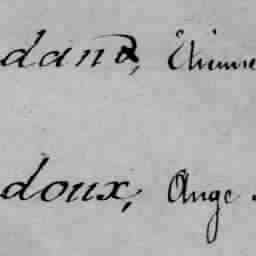 dand, Etienne
doux, Ange